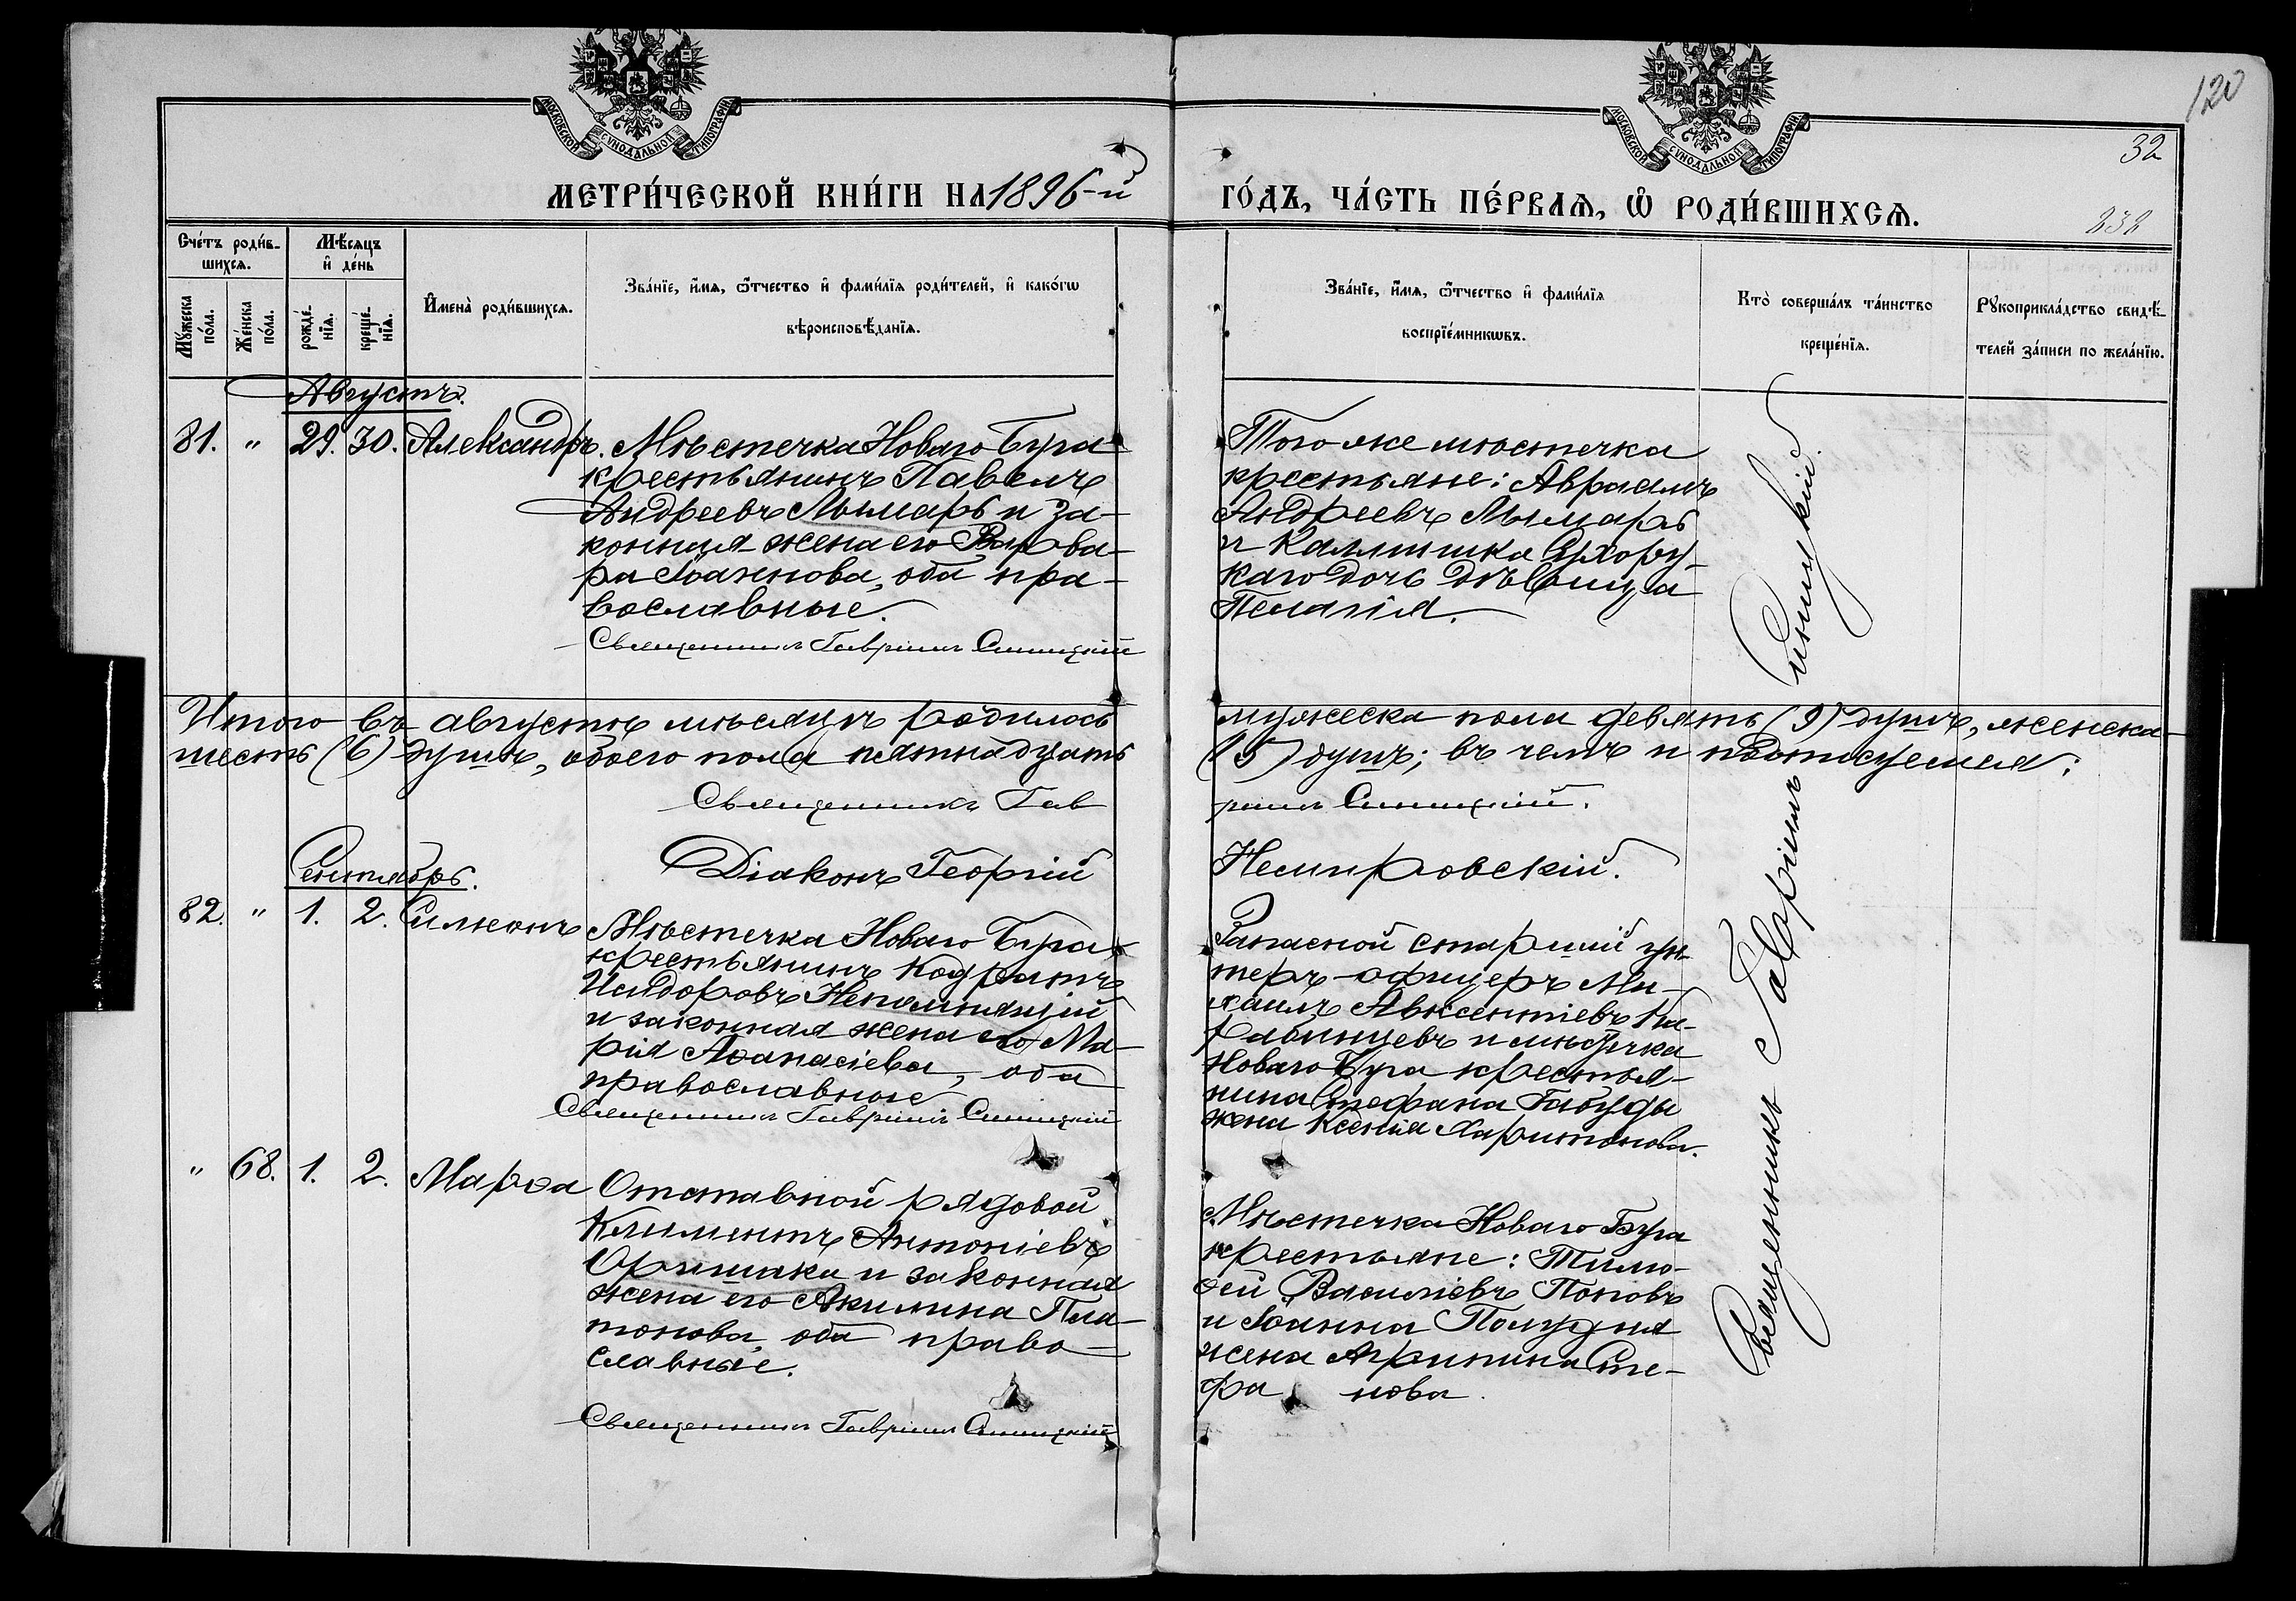 120
32
232
МОСКОВСКОЙ СѴНОДАЛЬНОЙ ТИПОГРАФІИ
МОСКОВСКОЙ СѴНОДАЛЬНОЙ ТИПОГРАФІИ
МЕТРИ́ЧЕСКОЙ КНИ́ГИ НА 1896-й
ГО́ДЪ, ЧА́СТЬ ПЕ́РВАѦ, Ѽ РОДИ́ВШИХСѦ.
Сче́тъ роди́в-
шихсѧ.
Мꙋ́жеска по́ла.
Же́нска по́ла.
Мѣ́сѧцъ и҆ де́нь
рожде́нїѧ.
креще́нїѧ.
И҆мена̀ роди́вшихсѧ.
Зва́нїе, и҆́мѧ, ѻ҆́тчество и҆ фами́лїѧ роди́телей, и҆ како́гѡ
вѣроисповѣ́данїѧ.
Зва́нїе, и҆́мѧ, ѻ҆́тчество и҆ фами́лїѧ
воспрїе́мникѡвъ.
Кто̀ соверша́лъ та́инство
креще́нїѧ.
Рꙋкоприкла́дство свидѣ́-
телей за́писи по жела́нїю.
Августъ.
81. " 29. 30. Александръ.
Мѣстечка Новаго Буга
крестьянинъ Павелъ
Андреевъ Лымарь и за-
конная жена его Варва-
ра Іоаннова, оба пра-
вославные.
Священникъ Гавріилъ Синицкій
Того же мѣстечка
крестьяне: Авраамъ
Андреевъ Лымарь
и Каллиника
каго дочь дѣвица
Пелагія.
Итого въ августѣ мѣсяцѣ родилось
мужеска пола девять (9) душъ, женска
шесть (6) душъ, обоего пола пятнадцать
(15) душъ; въ чемъ и подписуемся:
Священникъ Гавріилъ Синицкій.
Діаконъ Георгій Немировскій.
Сентябрь.
82. " 1. 2. Симеонъ
Мѣстечка Новаго Буга
крестьянинъ Кодратъ
Исидоровъ Непомнящій
и законная жена его Ма-
рія Аѳанасіева, оба
православные
Священникъ Гавріилъ Синицкій
Запасной старшій ун-
теръ-офицеръ Ми-
хаилъ Авксентіевъ Ка-
рабинцевъ и мѣстечка
Новаго Буга крестья-
нина Стефана
жена Ксенія Харитонова.
" 68. 1. 2. Марѳа
Отставной рядовой
Климентъ Антоніевъ
Оришака и законная
жена его Акилина Пла-
тонова, оба право-
славные.
Священникъ Гавріилъ Синицкій
Мѣстечка Новаго Буга
крестьяне: Тимо-
ѳей Василіевъ Поповъ
и Іоанна Полудня
жена Агрипина Сте-
фанова.
Священникъ Гавріилъ Синицкій.